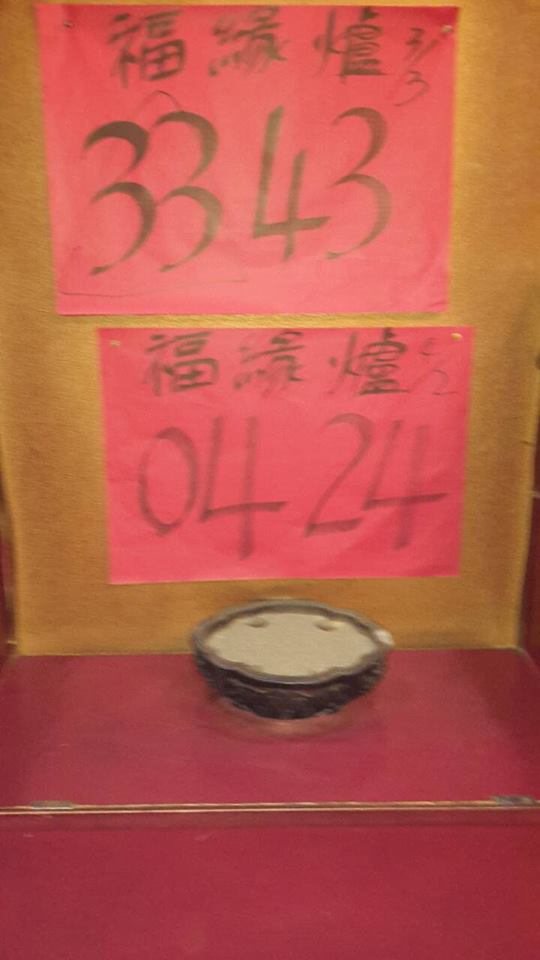 福緣爐 3/3
33 43
福緣爐
04 24